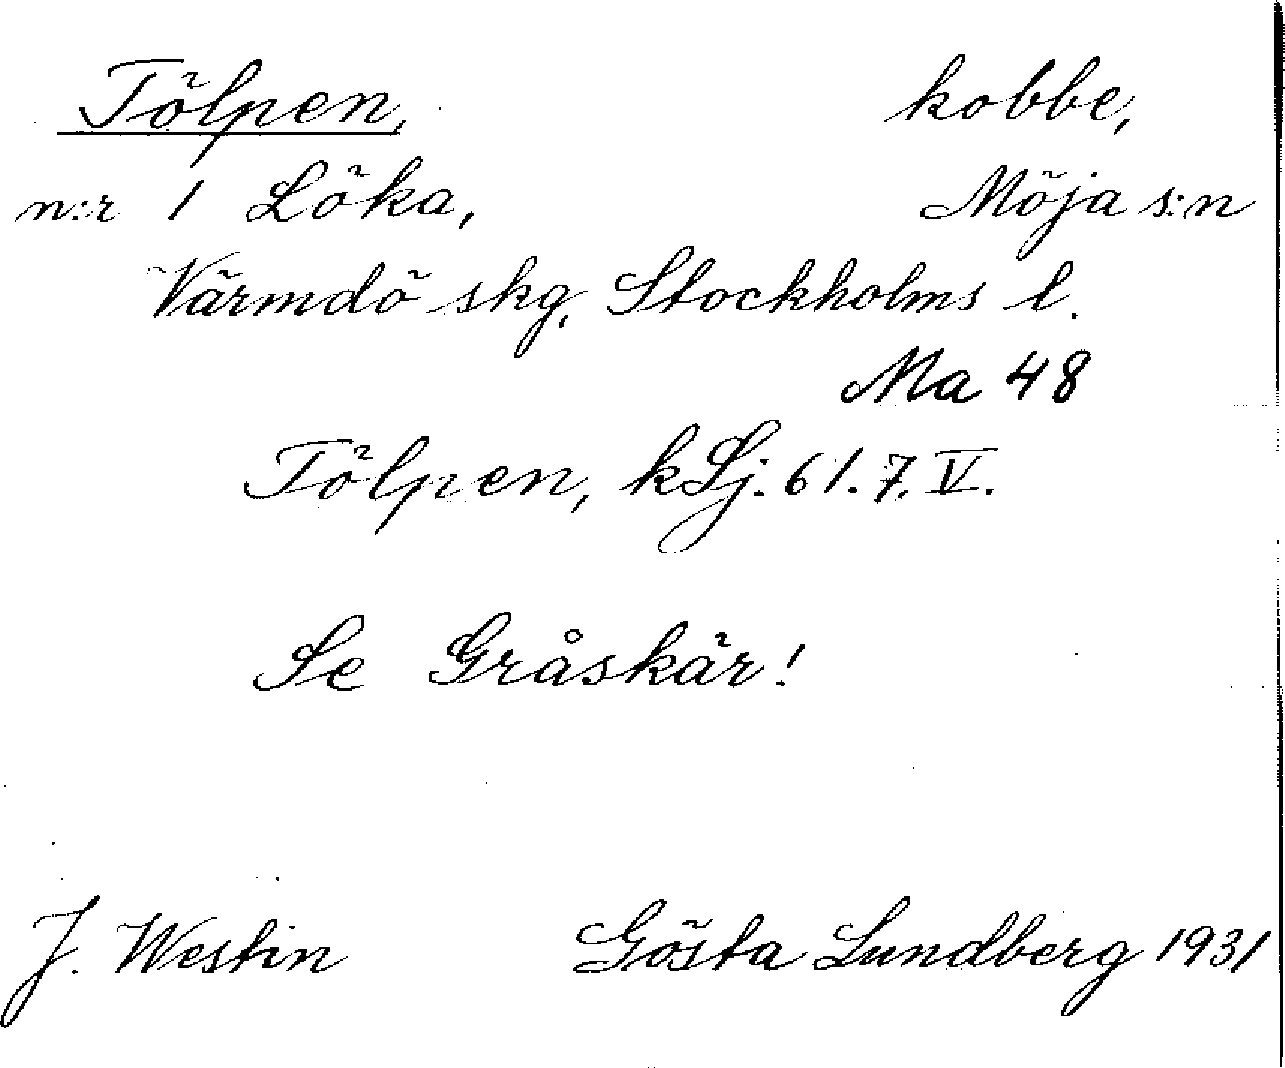 Tölpen, kobbe,
n:r 1 Löka, Möja s:n
Värmdö skg, Stockholms l.
Ma 48
Tölpen, kSj. 61.7.V.
Se Gråskär!
J. Westin Gösta Lundberg 1931